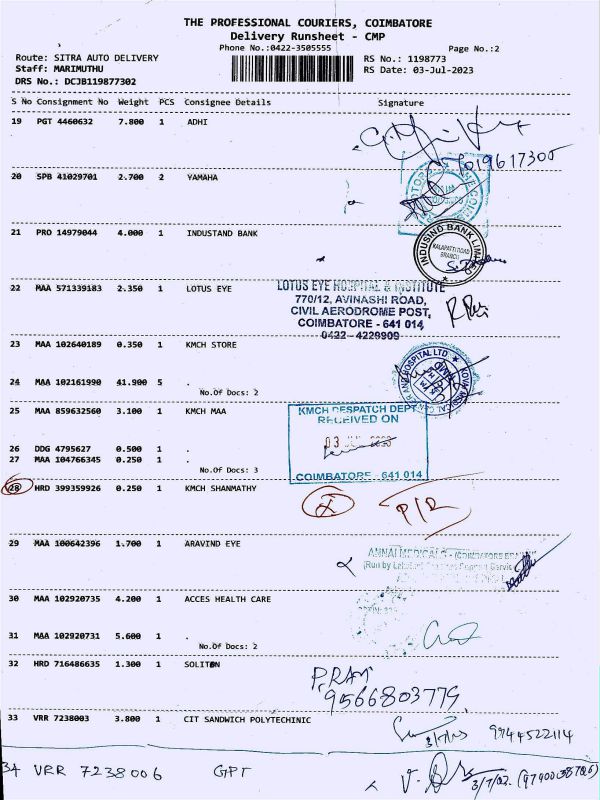 THE PROFESSIONAL COURIERS, COIMBATORE
Delivery Runsheet - CMP
Phone No.:0422-3505555
Page No.:2
Route: SITRA AUTO DELIVERY
RS No.: 1198773
Staff: MARIMUTHU
RS Date: 03-Jul-2023
DRS No.: DCJB119877302
S No Consignment No Weight PCS Consignee Details Signature
19 PGT 4460632 7.800 1 ADHI
20 SPB 41029701 2.700 2 YAMAHA
21 PRO 14979044 4.000 1 INDUSTAND BANK
INDUSIND BANK LIMITED
KALAPATTI ROAD
BRANCH
22 MAA 571339183 2.350 1 LOTUS EYE
LOTUS EYE HOSPITAL & INSTITUTE
770/12, AVINASHI ROAD,
CIVIL AERODROME POST,
COIMBATORE - 641 014
0422 - 4229909
23 MAA 102640189 0.350 1 KMCH STORE
24 MAA 102161990 41.900 5 .
No.Of Docs: 2
25 MAA 859632560 3.100 1 KMCH MAA
KMCH DESPATCH DEPT
RECEIVED ON
COIMBATORE - 641 014
26 DDG 4795627 0.500 1 .
27 MAA 104766345 0.250 1 .
No.Of Docs: 3
28 HRD 399359926 0.250 1 KMCH SHANMATHY
29 MAA 100642396 1.700 1 ARAVIND EYE
30 MAA 102920735 4.200 1 ACCES HEALTH CARE
31 MAA 102920731 5.600 1 .
No.Of Docs: 2
32 HRD 716486635 1.300 1 SOLITON
P.RAM
9566803779
33 VRR 7238003 3.800 1 CIT SANDWICH POLYTECHINIC
9944522114
34 VRR 7238006 GPT